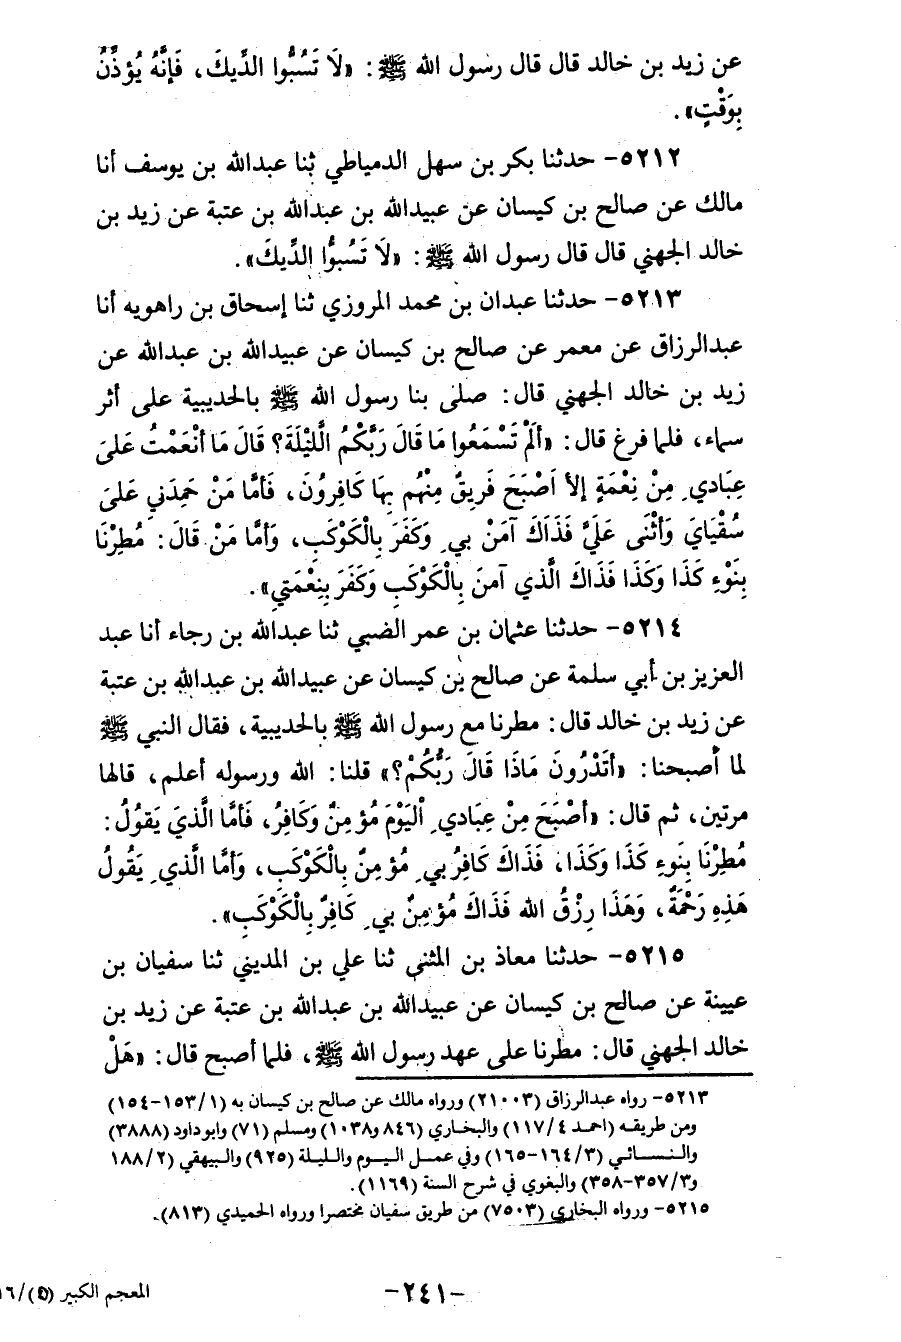 عن زيد بن خالد قال قال رسول الله ﷺ : «لَا تَسُبُّوا الدِّيكَ، فَإِنَّهُ يُؤَذِّنُ
بِوَقْتٍ».
٥٢١٢- حدثنا بكر بن سهل الدمياطي ثنا عبدالله بن يوسف أنا
مالك عن صالح بن كيسان عن عبيدالله بن عبدالله بن عتبة عن زيد بن
خالد الجهني قال قال رسول الله ﷺ : «لَا تَسُبوُّا الدِّيكَ».
٥٢١٣- حدثنا عبدان بن محمد المروزي ثنا إسحاق بن راهويه أنا
عبدالرزاق عن معمر عن صالح بن كيسان عن عبيدالله بن عبدالله عن
زيد بن خالد الجهني قال: صلى بنا رسول الله ﷺ بالحديبية على أثر
سماء، فلما فرغ قال: «ألَمْ تَسْمَعُوا مَا قَالَ رَبُّكُمُ الَّليْلَةَ؟ قَالَ مَا أنْعَمْتُ عَلىَ
عِبَادِي مِنْ نِعْمَةٍ إلاَّ أصْبَحَ فَرِيقٌ مِنْهُم بِهَا كَافِرُونَ، فَأمَّا مَنْ حَمِدَنِي عَلىَ
سُقْيَايَ وَأثْنَى عَلَيَّ فَذَاكَ آمَنْ بيِ وَكَفَرَ بِالْكَوْكَبِ، وَأمَّا مَنْ قَالَ: مُطِرْنَا
بِنَوْءِ كَذَا وَكَذَا فَذَاكَ الَّذي آمنَ بِالْكَوْكَبِ وَكَفَرَ بِنِعْمَتيِ».
٥٢١٤- حدثنا عثمان بن عمر الضبي ثنا عبدالله بن رجاء أنا عبد
العزيز بن أبي سلمة عن صالح بن كيسان عن عبيدالله بن عبدالله بن عتبة
عن زيد بن خالد قال: مطرنا مع رسول الله ﷺ بالحديبية، فقال النبي ﷺ
لما أصبحنا: «أتَدْرُونَ مَاذَا قَالَ رَبُّكُمْ؟» قلنا: الله ورسوله أعلم، قالها
مرتين، ثم قال: «أصْبَحَ مِنْ عِبَادِي الْيَوْمَ مُؤمِنٌ وَكَافِرٌ، فَأمَّا الَّذيَ يَقولُ:
مُطِرْنَا بِنَوءِ كَذَا وَكَذَا، فَذَاكَ كَافِرُ بيِ مُؤمِنٌ بِالْكَوْكَبِ، وَأمَّا الَّذيِ يَقُولُ
هَذِهِ رَحْمَةٌ، وَهَذَا رِزْقُ الله فَذَاكَ مُؤمِنٌ بيِ كَافِرٌ بِالْكَوْكَبِ».
٥٢١٥- حدثنا معاذ بن المثنى ثنا علي بن المديني ثنا سفيان بن
عيينة عن صالح بن كيسان عن عبيدالله بن عبدالله بن عتبة عن زيد بن
خالد الجهني قال: مطرنا على عهد رسول الله ﷺ، فلما أصبح قال: «هَلْ
٥٢١٣- رواه عبدالرزاق (٢١٠٠٣) ورواه مالك عن صالح بن كيسان به (١/١٥٣-١٥٤)
ومن طريقه (احمد ٤/١١٧) والبخاري (٨٤٦ و١٠٣٨) ومسلم (٧١) وابو داود (٣٨٨٨)
والنسائي (٣/١٦٤-١٦٥) وفي عمل اليوم والليلة (٩٢٥) والبيهقي (٢/١٨٨
و٣/٣٥٧-٣٥٨) والبغوي في شرح السنة (١١٦٩).
٥٢١٥- ورواه البخاري (٧٥٠٣) من طريق سفيان مختصرا ورواه الحميدي (٨١٣).
-٢٤١-
المعجم الكبير (٥)/١٦